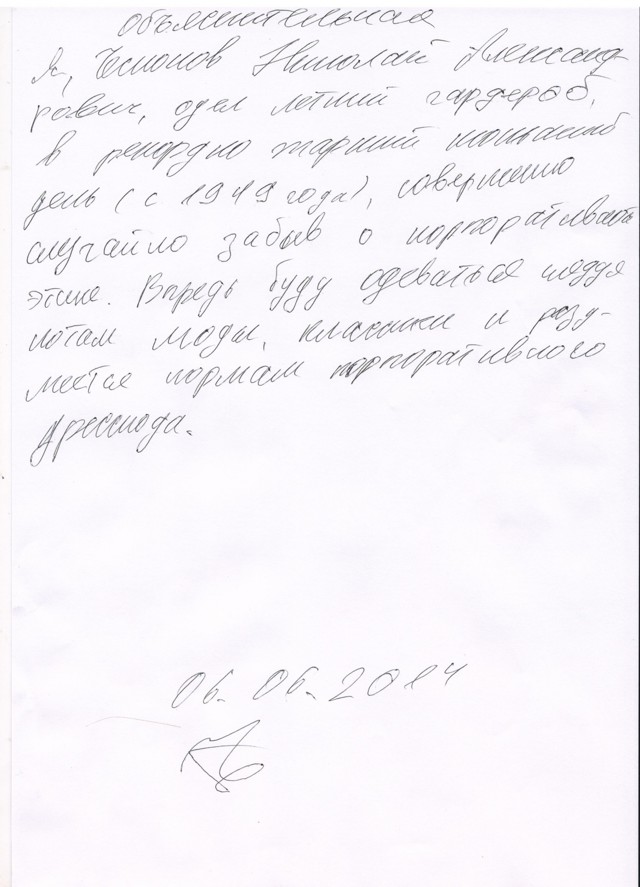 Объяснительная
Я, Николай Александ
рович, одел летний гардероб,
в рекордно жаркий июньский
день (с 1949 года), совершенно
случайно забыв о корпоративной
этике. Впредь буду одеваться следуя
нотам моды, классики и разу-
меется нормам корпоративного
дресскода.
06.06.2014